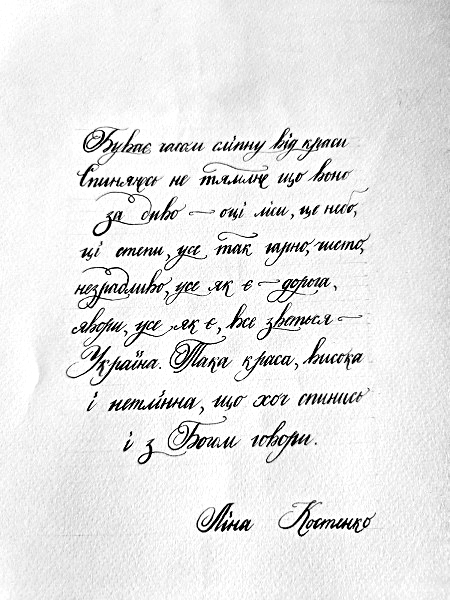 Буває часом сліпну від краси
Спиняюсь не тямлю що воно
за диво — оці ліси, це небо,
ці степи, усе так гарно, чисто,
незрадливо, усе як є — дорога,
явори, усе як є, все зветься —
Україна. Така краса, висока
і нетлінна, що хоч спинись
і з Богом говори.
Ліна Костенко